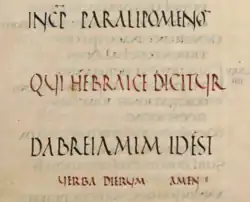 INCP · PARALIPOMENON
QUI HEBRAICE DICITUR
DABREIAMIM ID EST
VERBA DIERUM AMEN